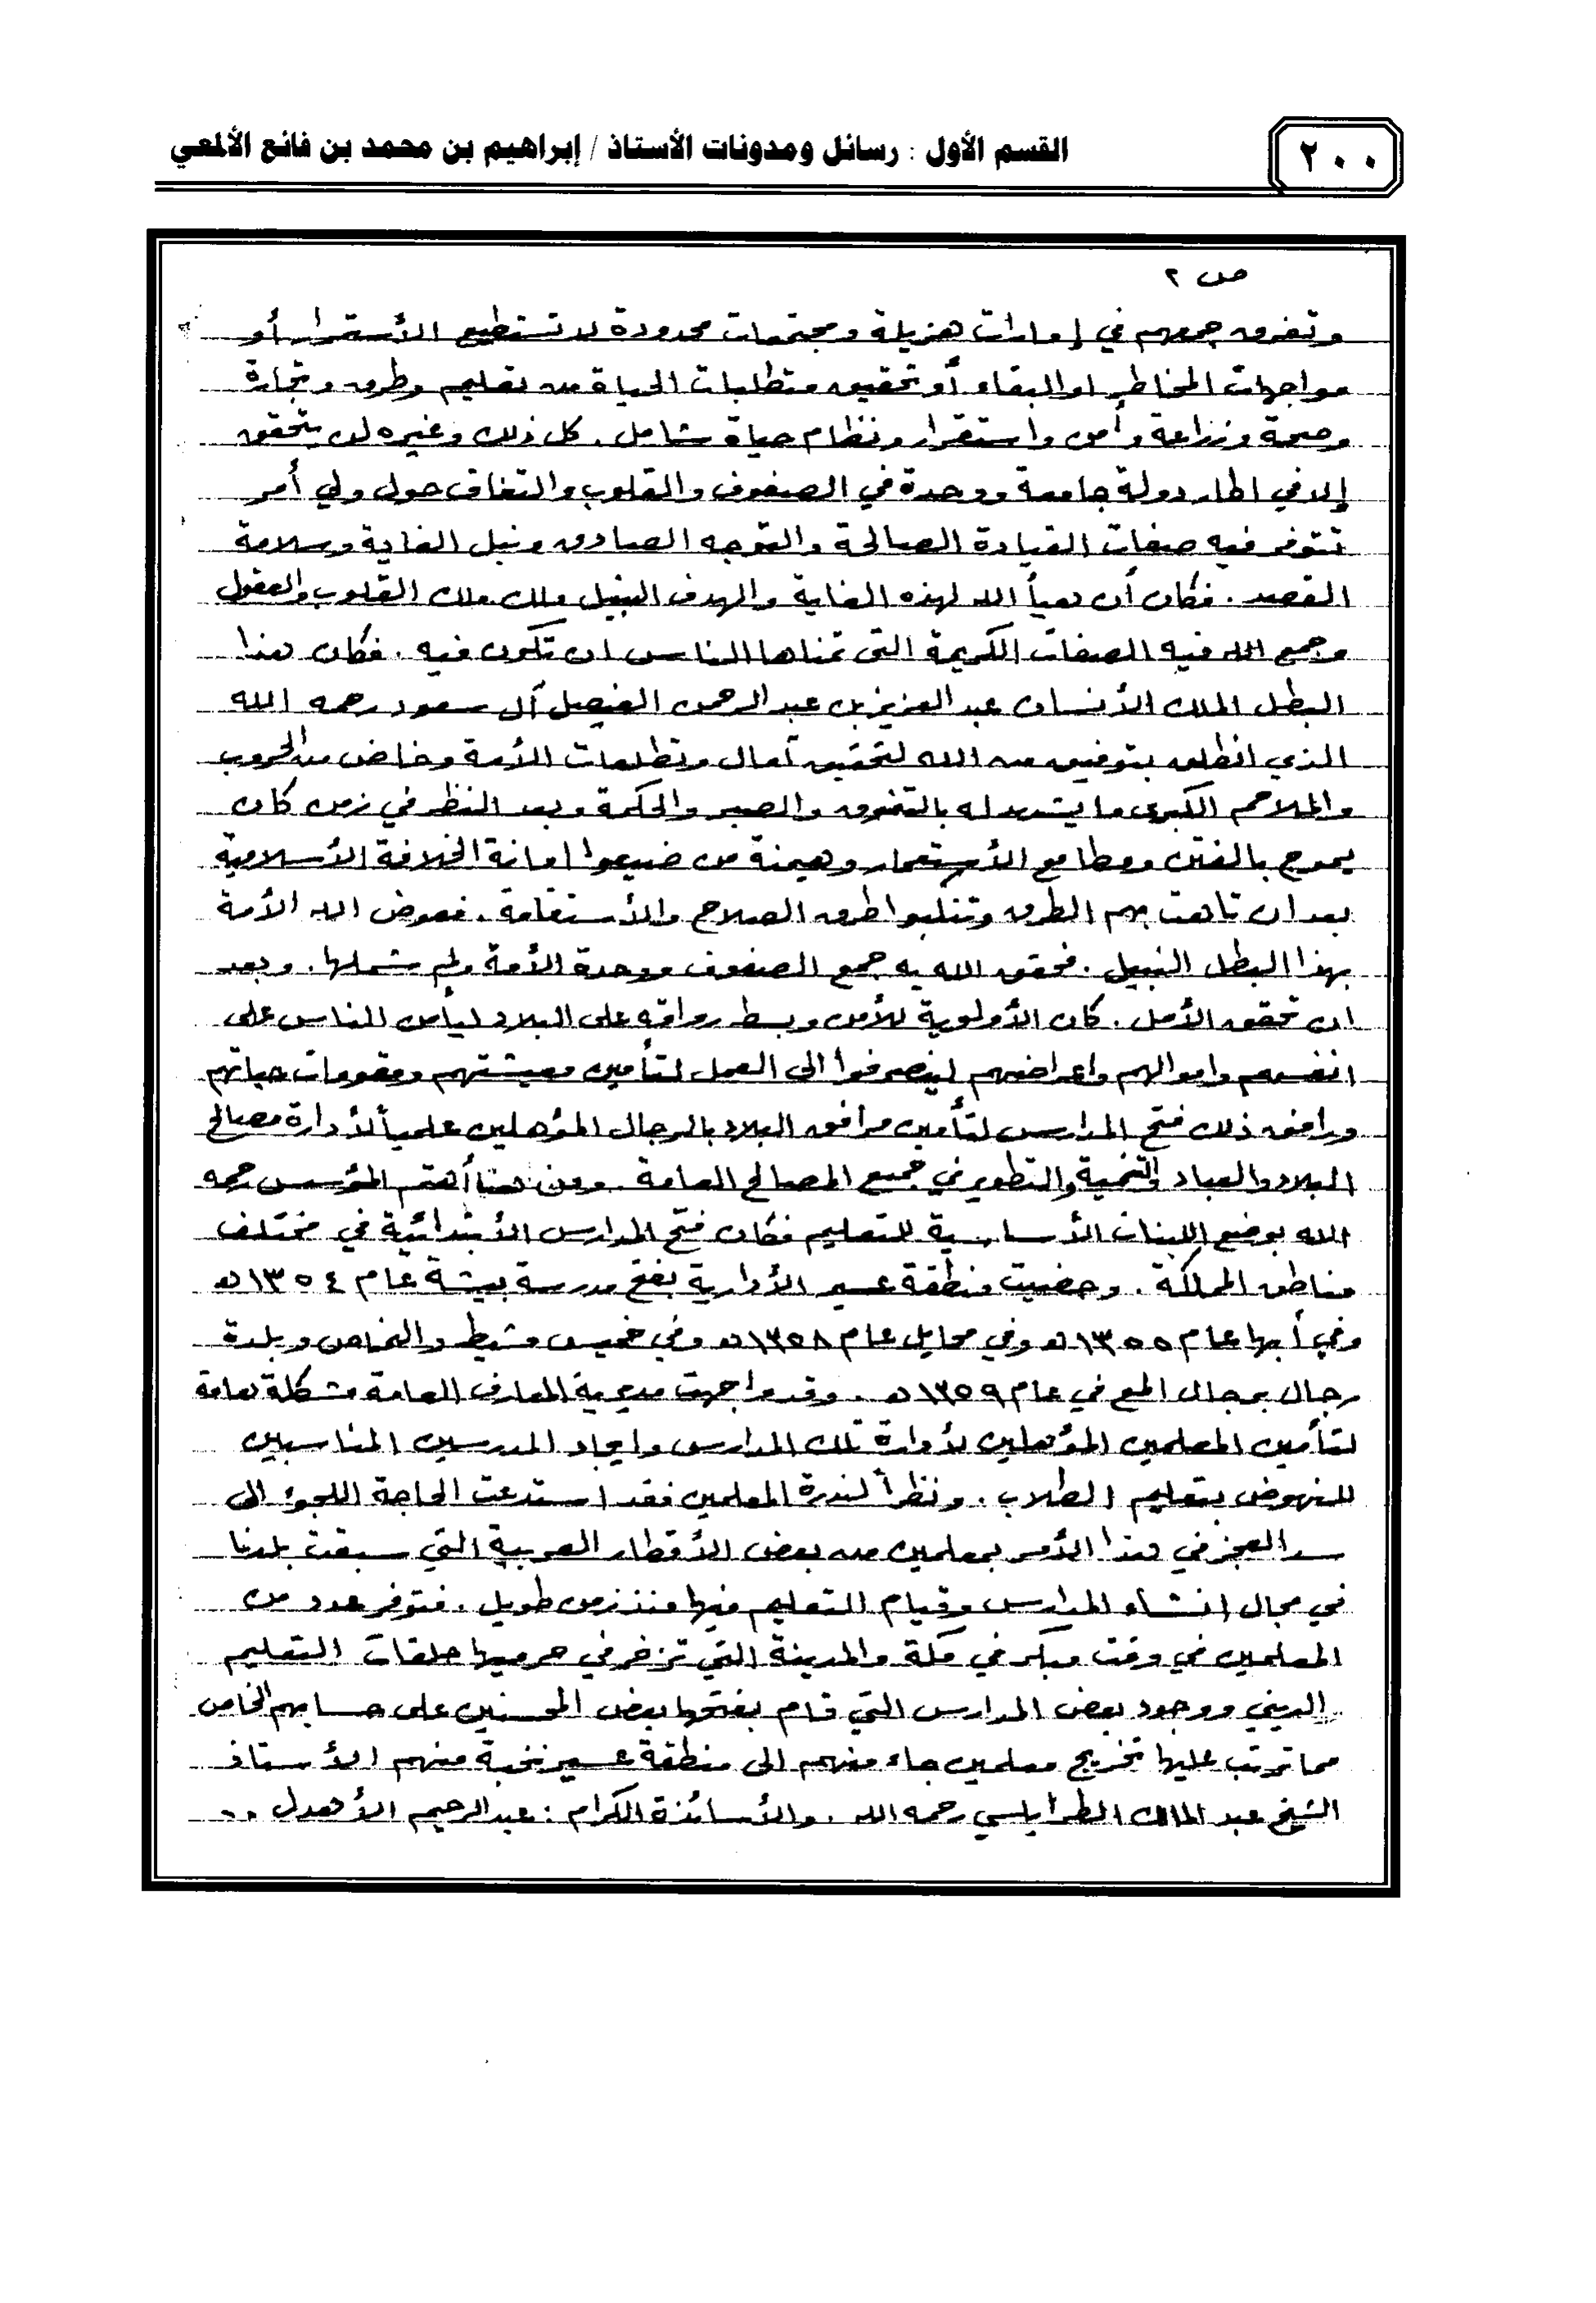 القسم الأول : رسائل ومدونات الأستاذ / إبراهيم بن محمد بن فائع الألمعي
٢٠٠
ص ٢
وتفرق جمعهم في إمارات هزيلة ومجتمعات محدودة لا تستطيع الأستمرار أو
مواجهات المخاطر او البقاء أو تحقيق متطلبات الحياة من تعليم وطرق وتجارة
وصحة وزراعة وأمن واستقرار ونظام حياة شامل . كل ذلك وغيره لن يتحقق
إلا في اطار دولة جامعة ووحدة في الصفوف والقلوب والتفاف حول ولي أمر
تتوفر فيه صفات القيادة الصالحة والتوجه الصادق ونبل الغاية وسلامة
القصد . فكان أن هيأ الله لهذه الغاية والهدف النبيل ملك ملك القلوب والعقول
وجمع الله فيه الصفات الكريمة التي تمناها الناس ان تكون فيه . فكان هذا
البطل الملك الأنسان عبد العزيز بن عبد الرحمن الفيصل آل سعود رحمه الله
الذي انطلق بتوفيق من الله لتحقيق آمال وتطلعات الأمة وخاض من الحروب
والملاحم الكبرى ما يشهد له بالتفوق والصبر والحكمة وبعد النظر في زمن كان
يموج بالفتن ومطامع الأستعمار وهيمنة من ضيعوا امانة الخلافة الأسلامية
بعد ان تاهت بهم الطرق وتنكبوا طرق الصلاح والأستقامة . فعوض الله الأمة
بهذا البطل النبيل . فحقق الله به جمع الصفوف ووحدة الأمة ولم شملها . وبعد
ان تحقق الأمل . كان الأولوية للأمن وبسط رواقه على البلاد ليأمن الناس على
انفسهم واموالهم واعراضهم لينصرفوا الى العمل لتأمين معيشتهم ومقومات حياتهم
ورافق ذلك فتح المدارس لتأمين مرافق البلاد بالرجال المؤهلين علمياً لأدارة مصالح
البلاد والعباد والتنمية والتطوير في جميع المصالح العامة . ومن هنا أهتم المؤسس رحمه
الله بوضع اللبنات الأساسية للتعليم فكان فتح المدارس الأبتدائية في مختلف
مناطق المملكة . وحضيت منطقة عسير الأدارية بفتح مدرسة بيشة عام ١٣٥٤هـ
وفي أبها عام ١٣٥٥هـ وفي محايل عام ١٣٥٨هـ وفي خميس مشيط والنماص وبلدة
رجال برجال المع في عام ١٣٥٩هـ . وقد واجهت مديرية المعارف العامة مشكلة هامة
لتأمين المعلمين المؤهلين لأدارة تلك المدارس وايجاد المدرسين المناسبين
للنهوض بتعليم الطلاب . ونظراً لندرة المعلمين فقد استدعت الحاجة اللجوء الى
سد العجز في هذا الأمر بمعلمين من بعض الأقطار العربية التي سبقت بلدنا
في مجال انشاء المدارس وقيام التعليم فيها منذ زمن طويل . فتوفر عدد من
المعلمين في وقت مبكر في مكة والمدينة التي تزخر في حرميها حلقات التعليم
الديني ووجود بعض المدارس التي قام بفتحها بعض المحسنين على حسابهم الخاص
مما ترتب عليها تخريج معلمين جاء منهم الى منطقة عسير نخبة منهم الأستاذ
الشيخ عبد المالك الطرابلسي رحمه الله . والأساتذة الكرام : عبد الرحيم الأهدل ..